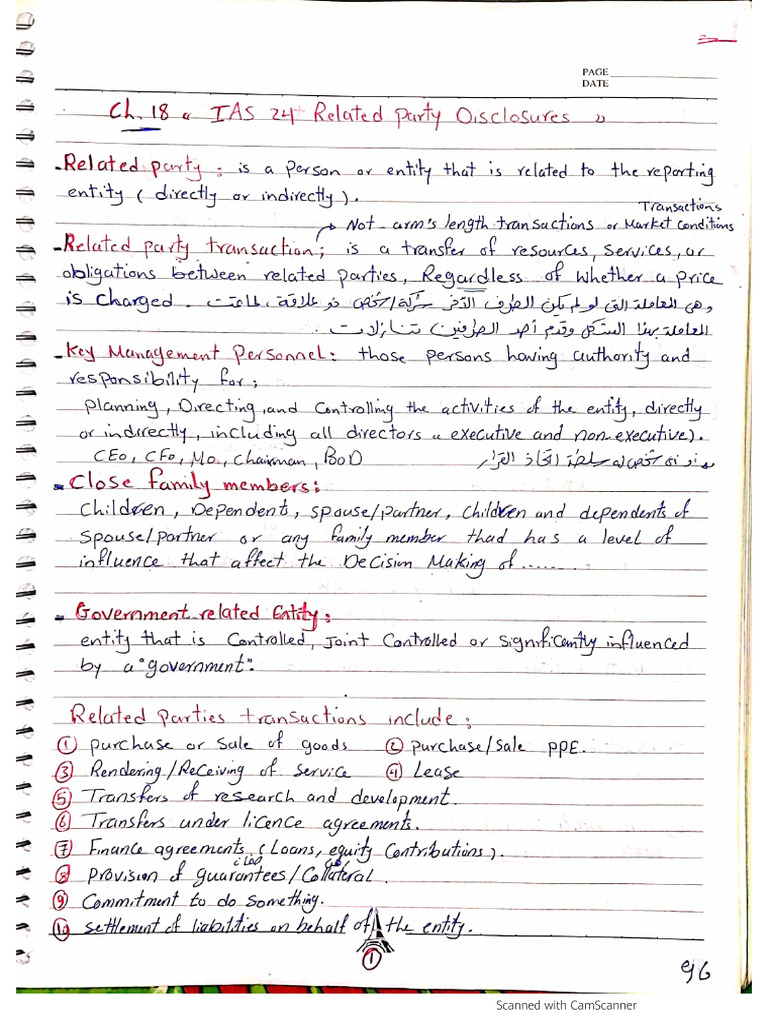 PAGE
DATE
Ch. 18 « IAS 24 Related Party Disclosures »
- Related party : is a person or entity that is related to the reporting
entity ( directly or indirectly ).
Transactions
Not arm's length transactions or Market Conditions
- Related party transaction; is a transfer of resources, services, or
obligations between related parties, Regardless of whether a price
is Charged. وهى المعاملة التى لو لم يكن الطرف الآخر شركة/شخص ذو علاقة، لما تمت
المعاملة بهذا الشكل وقدم أحد الطرفين تنازلات.
- Key Management Personnel: those persons having authority and
responsibility for;
planning, Directing, and Controlling the activities of the entity, directly
or indirectly, including all directors « executive and non-executive).
CEO, CFO, MD, Chairman, BOD شخص له سلطة اتخاذ القرار
- Close family members:
Children, Dependent, spouse/partner, children and dependents of
spouse/partner or any family member thad has a level of
influence that affect the Decision Making of.......
- Government related Entity:
entity that is Controlled, Joint Controlled or Significantly influenced
by a "government".
Related parties transactions include;
① purchase or sale of goods ② purchase/sale PPE.
③ Rendering/Receiving of service ④ Lease
⑤ Transfers of research and development.
⑥ Transfers under licence agreements.
⑦ Finance agreements (Loans, equity Contributions).
⑧ provision of guarantees/Collateral.
⑨ Commitment to do something.
⑩ settlement of liabilities on behalf of the entity.
①
96
Scanned with CamScanner